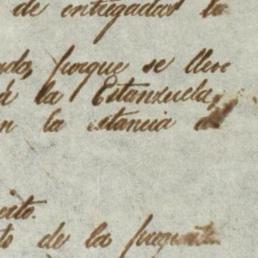 de entregadas lo
ado, porque se lleve
a la Estanzuela,
en la estancia de
eito.
to de la pregunta